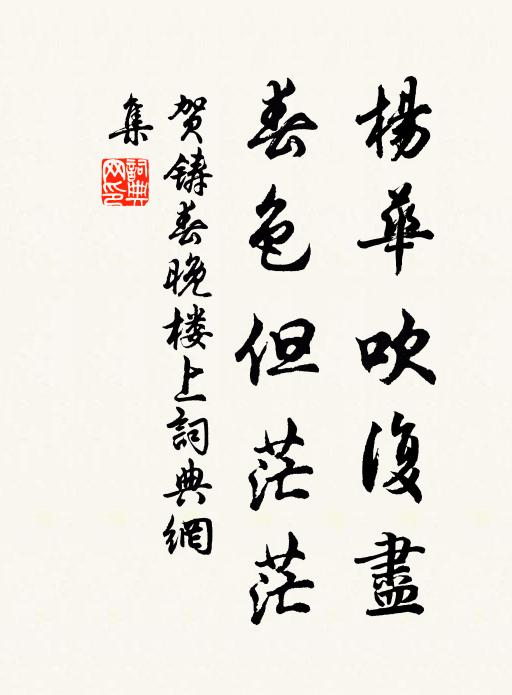 楊華吹復盡
春色但茫茫
贺鑄春晚楼上詞典網
集
詞典网印